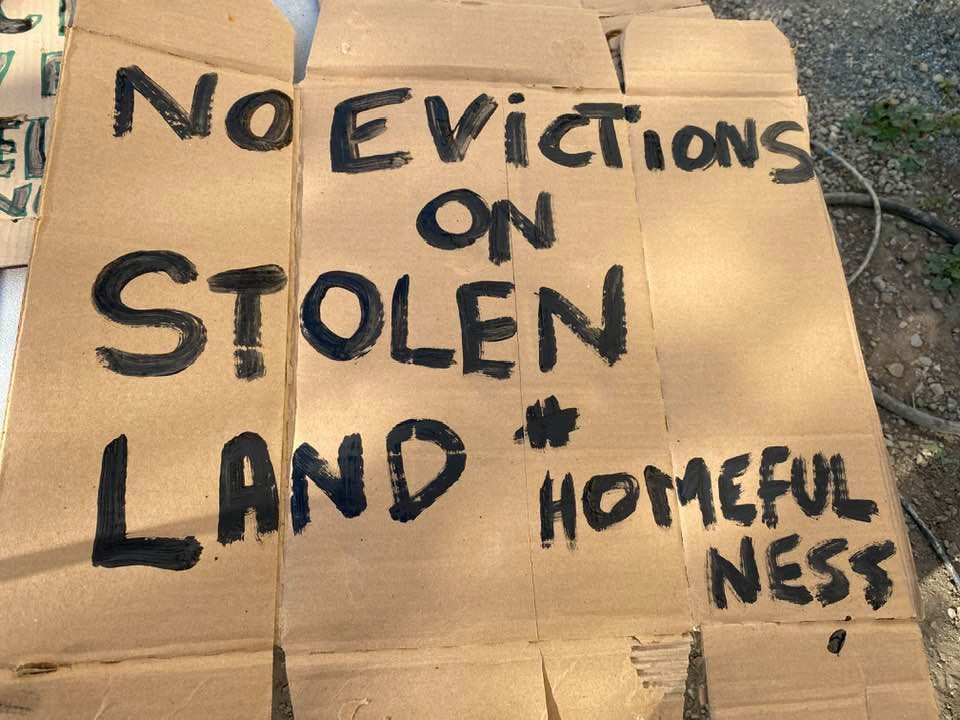 NO EVICTIONS
ON
STOLEN
LAND #
HOMEFUL
NESS